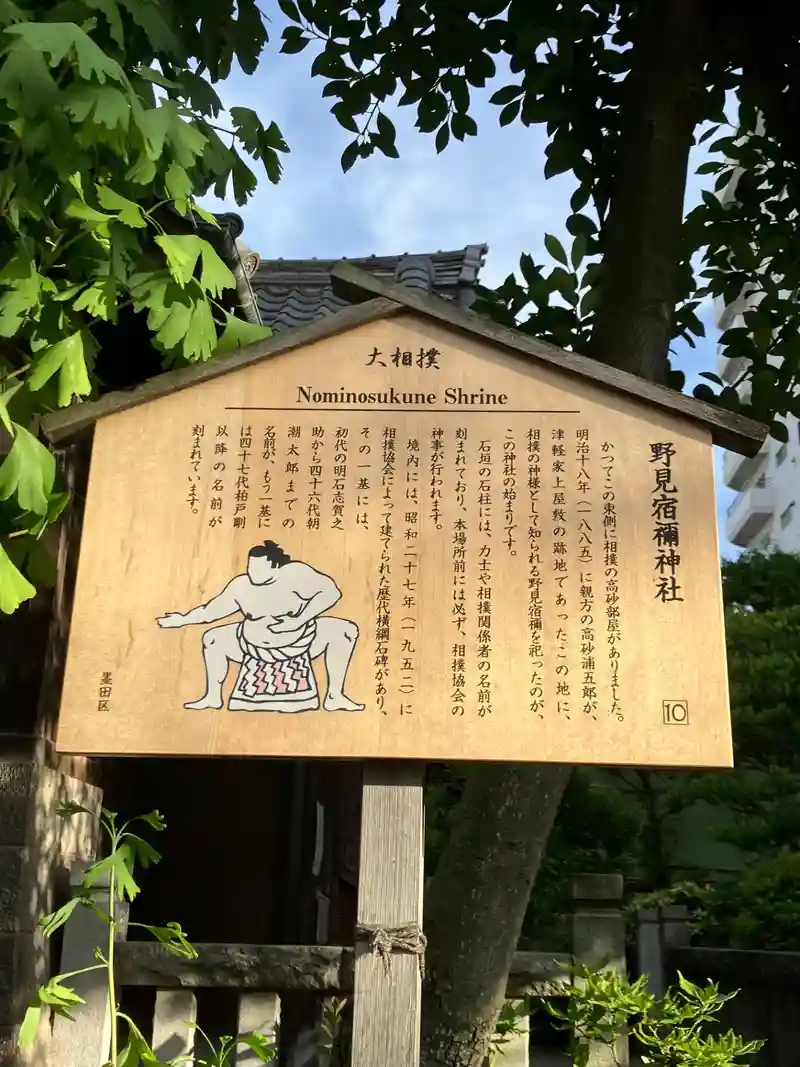 大相撲
Nominosukune Shrine
野見宿禰神社
かつてこの東側に相撲の高砂部屋がありました。
明治十八年（一八八五）に親方の高砂浦五郎が、
津軽家上屋敷の跡地であったこの地に、
相撲の神様として知られる野見宿禰を祀ったのが、
この神社の始まりです。
石垣の石柱には、力士や相撲関係者の名前が
刻まれており、本場所前には必ず、相撲協会の
神事が行われます。
境内には、昭和二十七年（一九五二）に
相撲協会によって建てられた歴代横綱石碑があり、
その一基には、
初代の明石志賀之
助から四十六代朝
潮太郎までの
名前が、もう一基に
は四十七代柏戸剛
以降の名前が
刻まれています。
墨田区
10